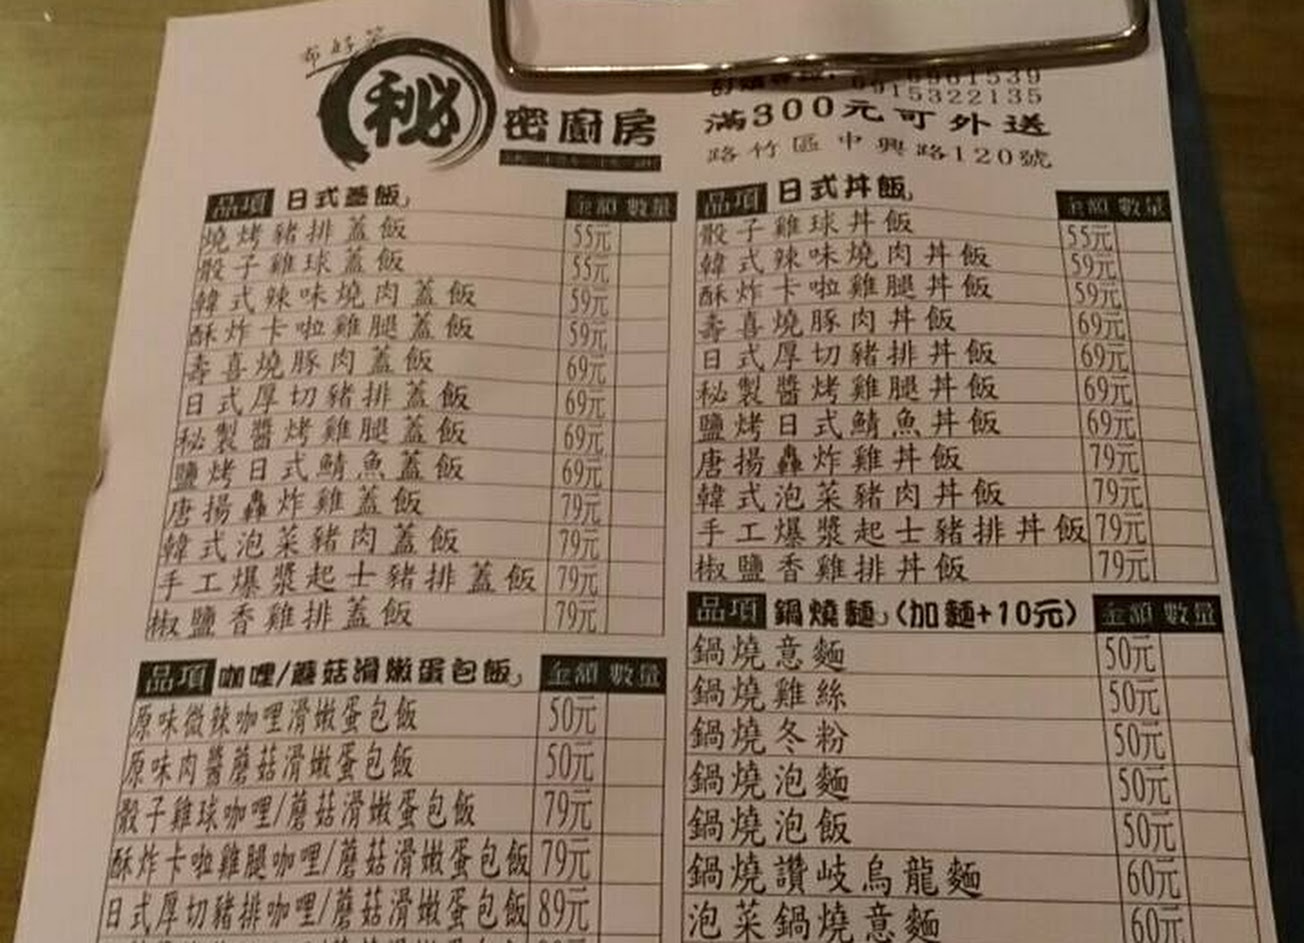 秘密廚房
915322135
滿300元可外送
路竹區中興路120號
品項 日式蓋飯 金額 數量
燒烤豬排蓋飯 55元
骰子雞球蓋飯 55元
韓式辣味燒肉蓋飯 59元
酥炸卡啦雞腿蓋飯 59元
壽喜燒豚肉蓋飯 69元
日式厚切豬排蓋飯 69元
秘製醬烤雞腿蓋飯 69元
鹽烤日式鯖魚蓋飯 69元
唐揚轟炸雞蓋飯 79元
韓式泡菜豬肉蓋飯 79元
手工爆漿起士豬排蓋飯 79元
椒鹽香雞排蓋飯 79元
品項 咖哩/蘑菇滑嫩蛋包飯 金額 數量
原味微辣咖哩滑嫩蛋包飯 50元
原味肉醬蘑菇滑嫩蛋包飯 50元
骰子雞球咖哩/蘑菇滑嫩蛋包飯 79元
酥炸卡啦雞腿咖哩/蘑菇滑嫩蛋包飯 79元
日式厚切豬排咖哩/蘑菇滑嫩蛋包飯 89元
品項 日式丼飯 金額 數量
骰子雞球丼飯 55元
韓式辣味燒肉丼飯 59元
酥炸卡啦雞腿丼飯 59元
壽喜燒豚肉丼飯 69元
日式厚切豬排丼飯 69元
秘製醬烤雞腿丼飯 69元
鹽烤日式鯖魚丼飯 69元
唐揚轟炸雞丼飯 79元
韓式泡菜豬肉丼飯 79元
手工爆漿起士豬排丼飯 79元
椒鹽香雞排丼飯 79元
品項 鍋燒麵(加麵+10元) 金額 數量
鍋燒意麵 50元
鍋燒雞絲 50元
鍋燒冬粉 50元
鍋燒泡麵 50元
鍋燒泡飯 50元
鍋燒讚岐烏龍麵 60元
泡菜鍋燒意麵 60元